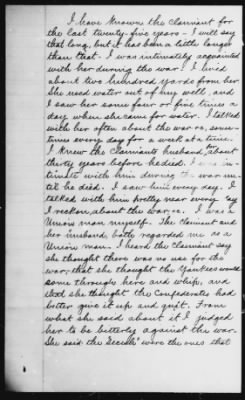 I have known the Claimant for
the last twenty-five years - I will say
that long, but it has been a little longer
than that - I was intimately acquainted
with her during the war. I lived
about two hundred yards from her
She used water out of my well, and
I saw her some four or five times a
day when she came for water. I talked
with her often about the war vs. some
times every day for a week at a time.
I knew the Claimants husband about
thirty years before he died. I was in-
timate with him during the war un-
til he died. I saw him every day. I
talked with him pretty near every day
I reckon, about the war vs. I was a
Union man myself. The claimant and
her husband, both regarded me as a
Union man. I heard the claimant say
she thought there was no use for the
war; that she thought the Yankees would
come through here and whip, and
that she thought the Confederates had
better give it up and quit. From
what she said about it I judged
her to be bitterly against the war.
She said the "Secesh" were the ones that